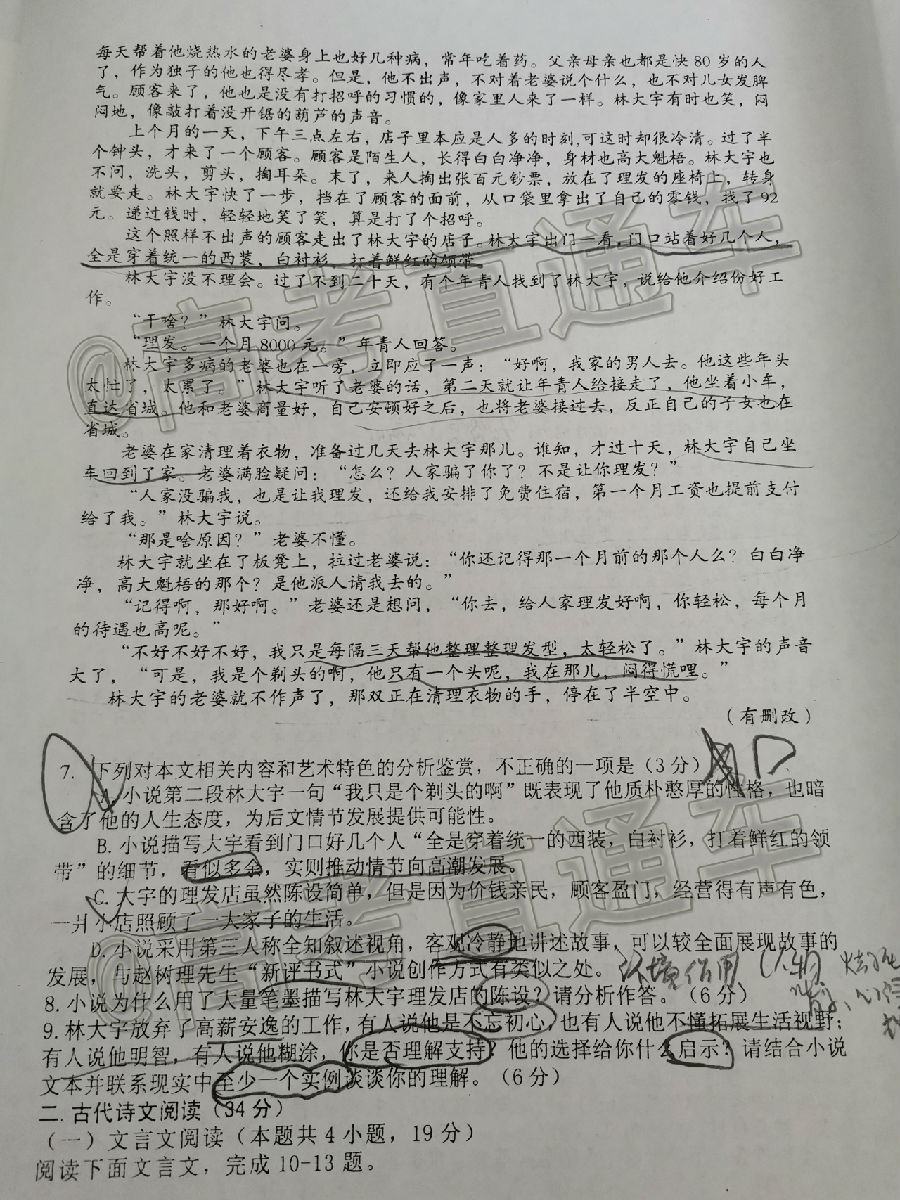 每天帮着他烧热水的老婆身上也好几种病，常年吃着药。父亲母亲也都是快80岁的人
了，作为独子的他也得尽孝。但是，他不出声，不对着老婆说个什么，也不对儿女发脾
气。顾客来了，他也是没有打招呼的习惯的，像家里人来了一样。林大宇有时也笑，闷
闷地，像敲打着没开锯的葫芦的声音。
上个月的一天，下午三点左右，店子里本应是人多的时刻，可这时却很冷清。过了半
个钟头，才来了一个顾客。顾客是陌生人，长得白白净净，身材也高大魁梧。林大宇也
不问，洗头，剪头，掏耳朵。末了，来人掏出张百元钞票，放在了理发的座椅上，转身
就要走。林大宇快了一步，挡在了顾客的面前，从口袋里拿出了自己的零钱，找了92
元。递过钱时，轻轻地笑了笑，真是打了个招呼。
这个照样不出声的顾客走出了林大宇的店子。林大宇出门一看，门口站着好几个人，
全是穿着统一的西装，白衬衫，打着鲜红的领带。
林大宇没不理会。过了不到二十天，有个年青人找到了林大宇，说给他介绍份好工
作。
“干啥？”林大宇问。
“理发。一个月8000元。”年青人回答。
林大宇多病的老婆也在一旁，立即应了一声：“好啊，我家的男人去。他这些年头
太忙了，太累了。”林大宇听了老婆的话，第二天就让年青人给接走了，他坐着小车，
直达省城。他和老婆商量好，自己安顿好之后，也将老婆接过去，反正自己的子女也在
省城。
老婆在家清理着衣物，准备过几天去林大宇那儿。谁知，才过十天，林大宇自己坐
车回到了家。老婆满脸疑问：“怎么？人家骗了你了？不是让你理发？”
“人家没骗我，也是让我理发，还给我安排了免费住宿，第一个月工资也提前支付
给了我。”林大宇说。
“那是啥原因？”老婆不懂。
林大宇就坐在了板凳上，拉过老婆说：“你还记得那一个月前的那个人么？白白净
净，高大魁梧的那个？是他派人请我去的。”
“记得啊，那好啊。”老婆还是想问，“你去，给人家理发好啊，你轻松，每个月
的待遇也高呢。”
“不好不好不好，我只是每隔三天帮他整理整理发型，太轻松了。”林大宇的声音
大了，“可是，我是个剃头的啊，他只有一个头呢，我在那儿，闷得慌哩。”
林大宇的老婆就不作声了，那双正在清理衣物的手，停在了半空中。
（有删改）
7. 下列对本文相关内容和艺术特色的分析鉴赏，不正确的一项是（3分） D
A. 小说第二段林大宇一句“我只是个剃头的啊”既表现了他质朴憨厚的性格，也暗
含了他的人生态度，为后文情节发展提供可能性。
B. 小说描写大宇看到门口好几个人“全是穿着统一的西装，白衬衫，打着鲜红的领
带”的细节，看似多余，实则推动情节向高潮发展。
C. 大宇的理发店虽然陈设简单，但是因为价钱亲民，顾客盈门，经营得有声有色，
一并小店照顾了一大家子的生活。
D. 小说采用第三人称全知叙述视角，客观冷静地讲述故事，可以较全面展现故事的
发展，与赵树理先生“新评书式”小说创作方式有类似之处。 环境作用
8. 小说为什么用了大量笔墨描写林大宇理发店的陈设？请分析作答。（6分）
9. 林大宇放弃了高薪安逸的工作，有人说他是不忘初心，也有人说他不懂拓展生活视野；
有人说他明智，有人说他糊涂，你是否理解支持；他的选择给你什么启示？请结合小说
文本并联系现实中至少一个实例谈谈你的理解。（6分）
二. 古代诗文阅读（34分）
（一）文言文阅读（本题共4小题，19分）
阅读下面文言文，完成10-13题。
@高考直通车
@高考直通车